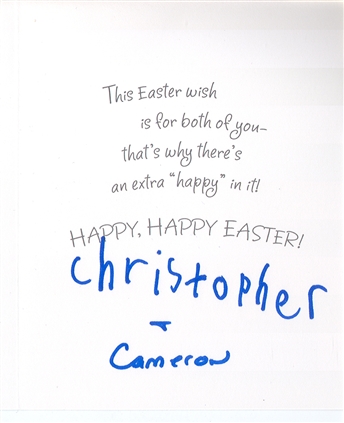 This Easter wish
is for both of you–
that's why there's
an extra "happy" in it!
HAPPY, HAPPY EASTER!
christopher
Cameron